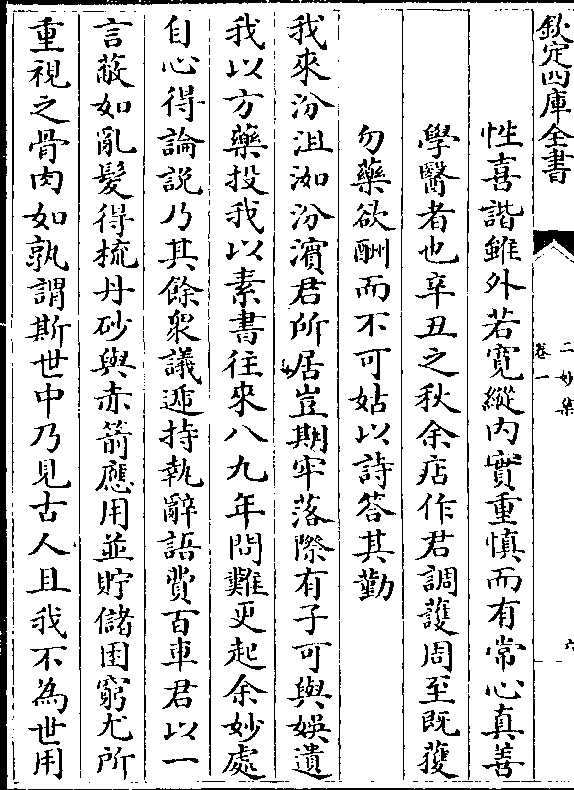 欽定四庫全書
二妙集
卷一
六
性喜諧雖外若寛縱内實重慎而有常心真善
學醫者也辛丑之秋余痁作君調護周至既獲
勿藥欲酬而不可姑以詩答其勤
我來汾沮洳汾濱君所居豈期牢落際有子可與娱遺
我以方藥投我以素書往來八九年問難更起余妙處
自心得論説乃其餘衆議遞持執辭語費百車君以一
言蔽如亂髮得梳丹砂與赤箭應用並貯儲困窮尤所
重視之骨肉如孰謂斯世中乃見古人且我不為世用